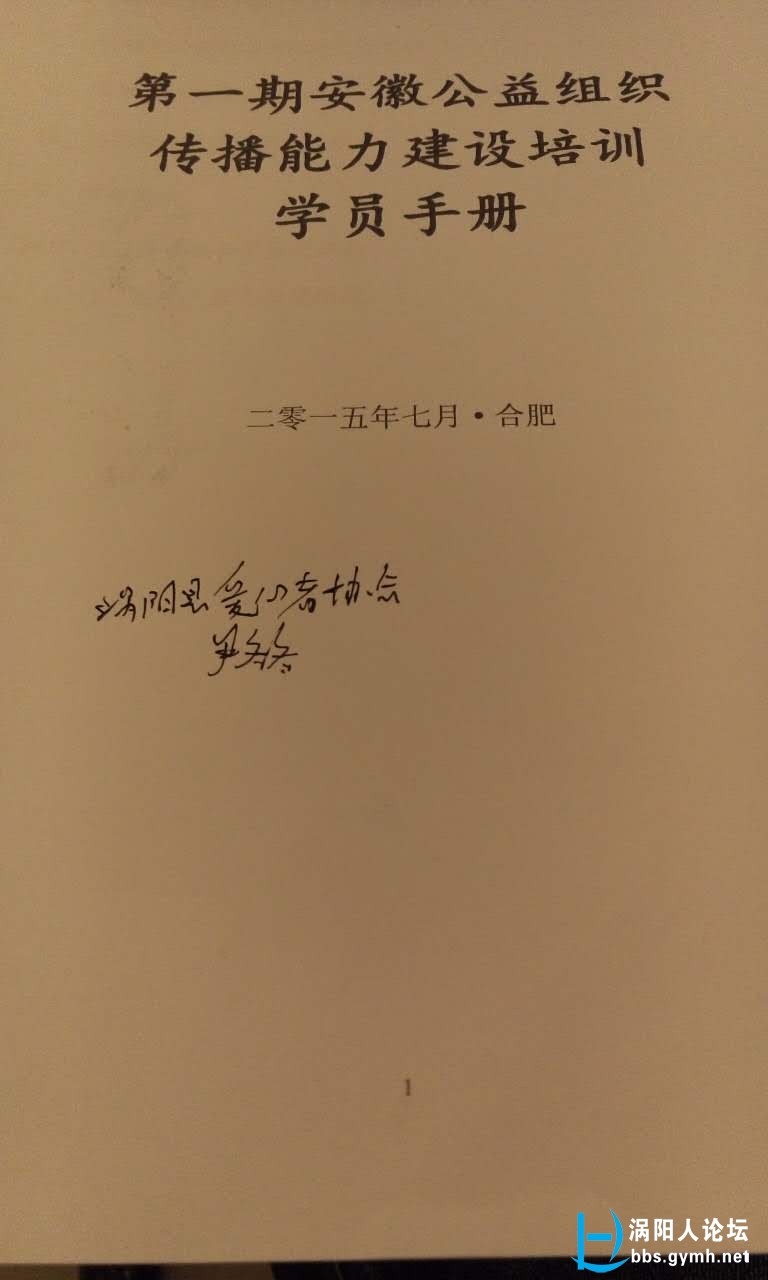 第一期安徽公益组织
传播能力建设培训
学员手册
二零一五年七月·合肥
涡阳县爱心者协会
1
涡阳人论坛
bbs.gymh.net